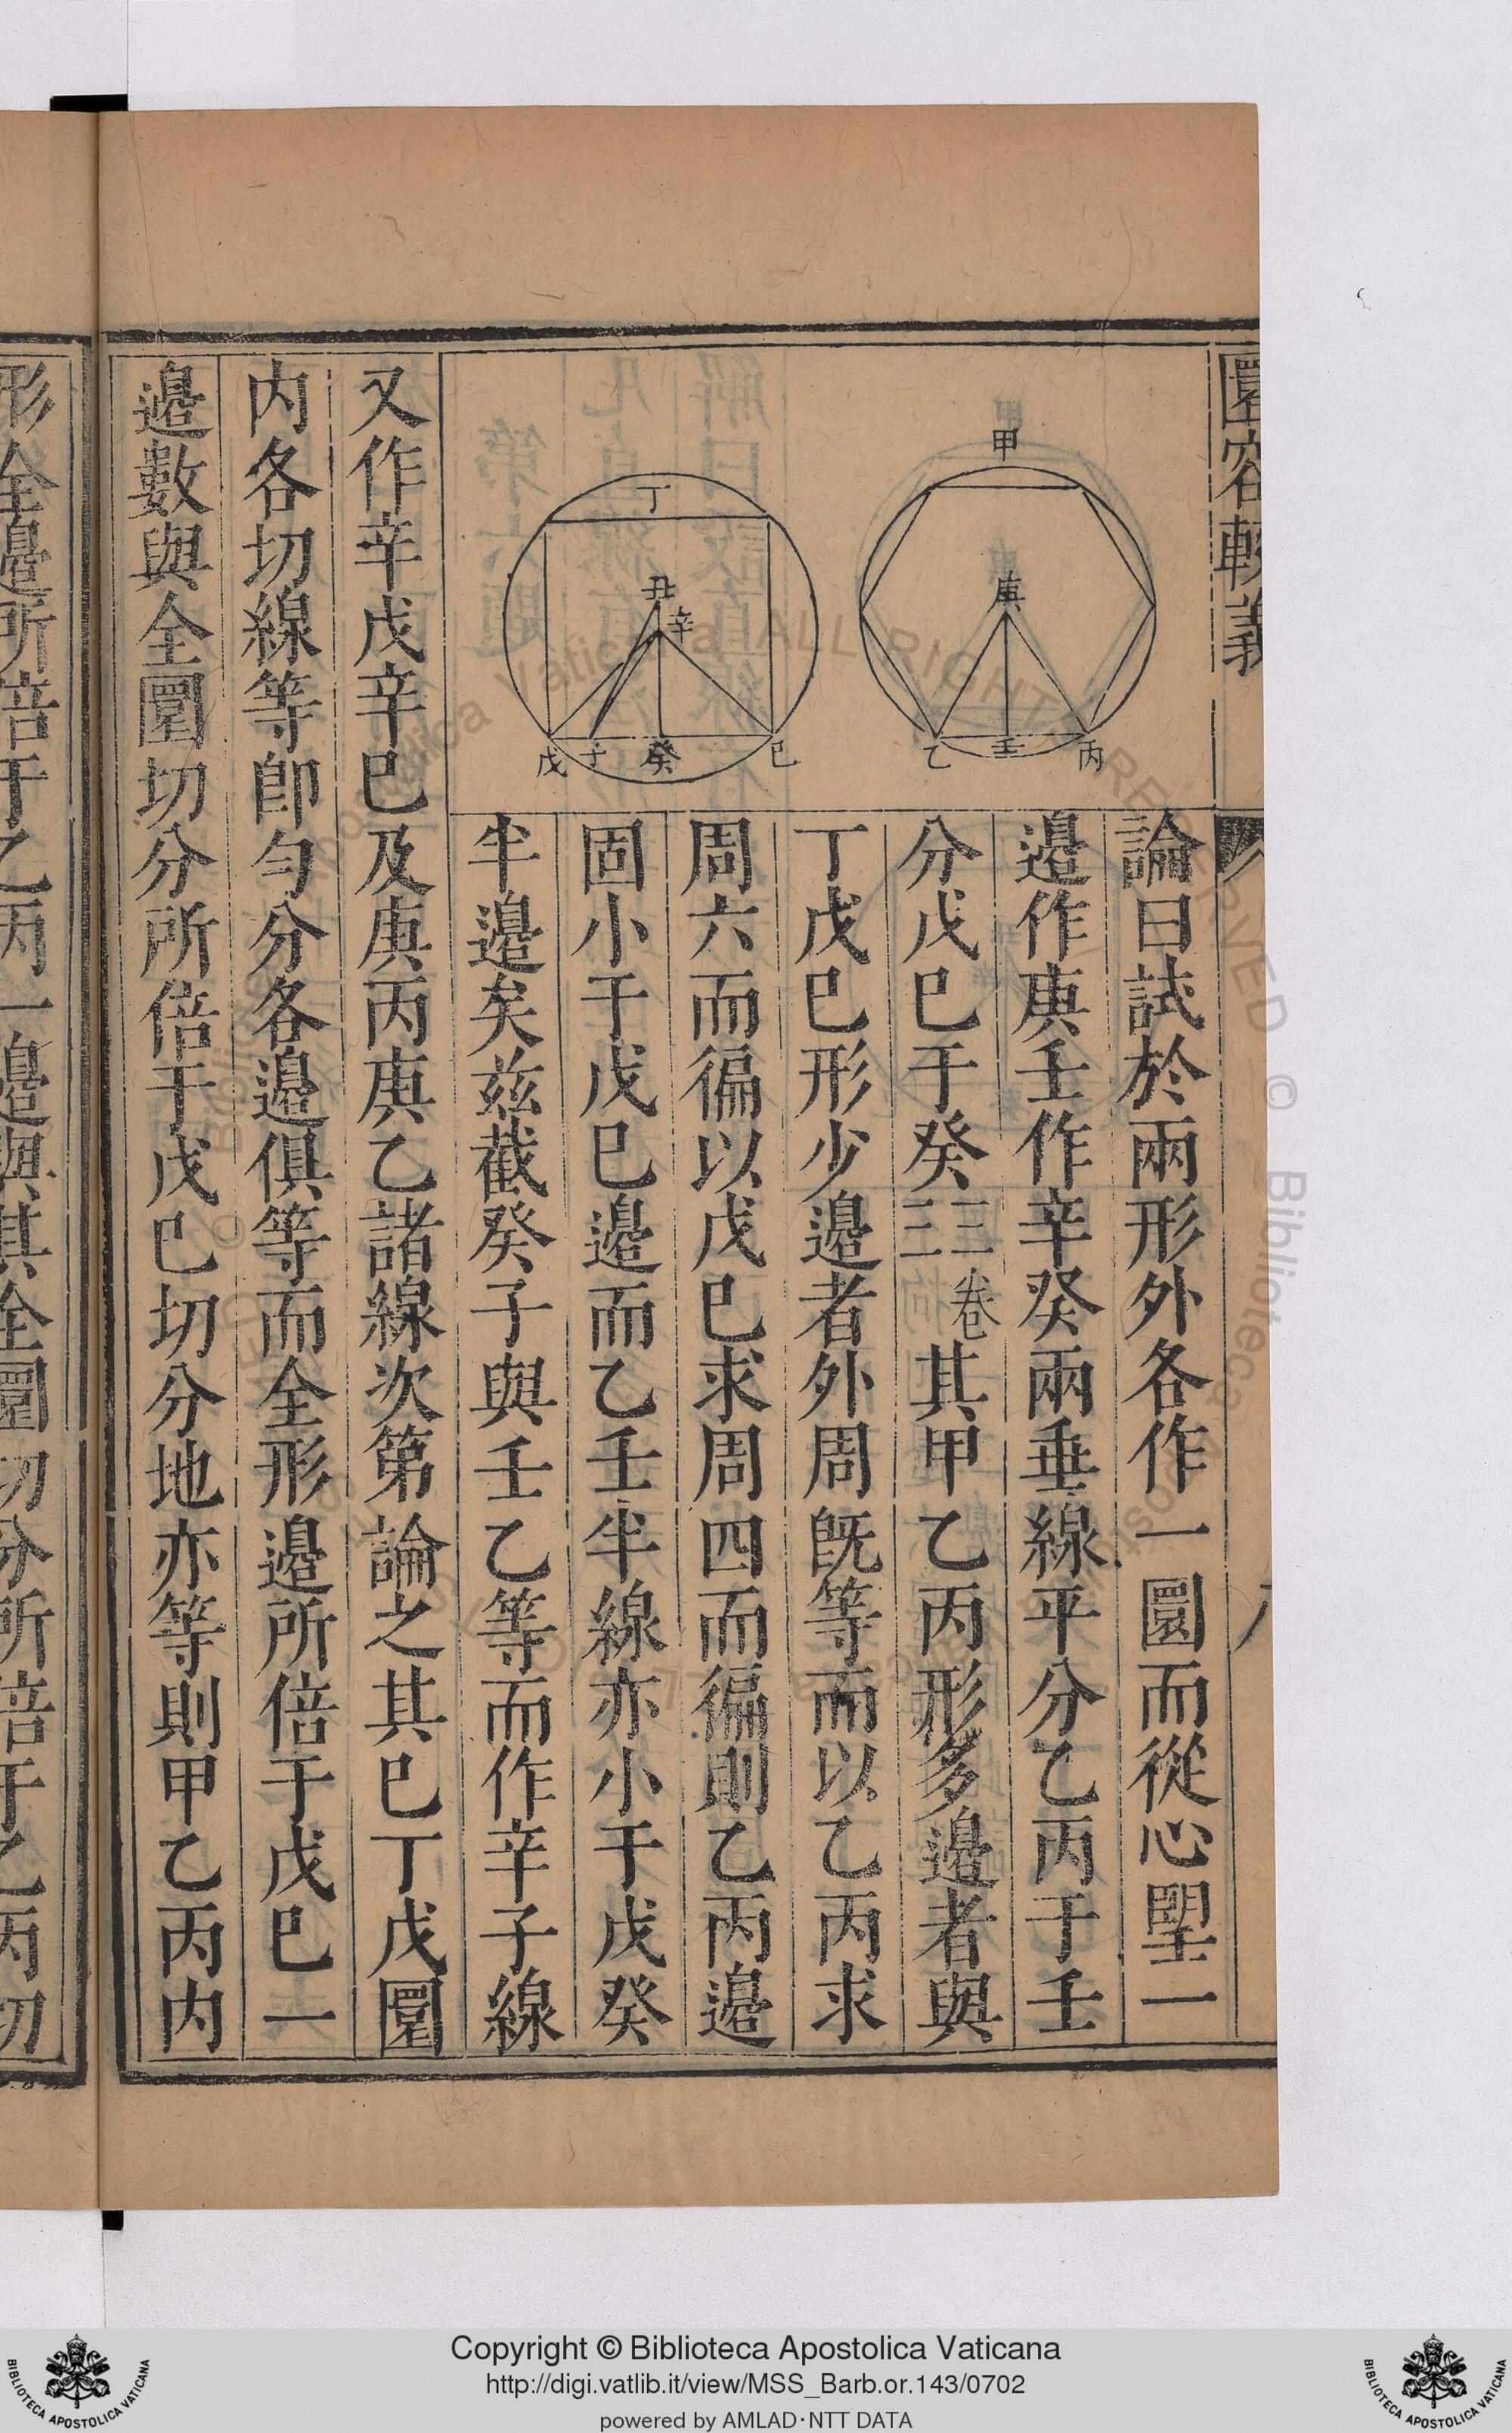 圜容較義
甲
庚
乙 壬 丙
丁
丑
辛
戊 子 癸 己
論曰試於兩形外各作一圜而從心望一
邊作庚壬作辛癸兩垂線平分乙丙于壬
分戊巳于癸三卷三其甲乙丙形多邊者與
丁戊巳形少邊者外周旣等而以乙丙求
周六而徧以戊巳求周四而徧則乙丙邊
固小于戊巳邊而乙壬半線亦小于戊癸
半邊矣玆截癸子與壬乙等而作辛子線
又作辛戊辛巳及庚丙庚乙諸線次第論之其巳丁戊圜
内各切線等卽勻分各邊俱等而全形邊所倍于戊巳一
邊數與全圜切分所倍于戊巳切分地亦等則甲乙丙内
形全邊所倍于乙丙一邊與其全圜切分所倍于乙丙切
Copyright © Biblioteca Apostolica Vaticana
http://digi.vatlib.it/view/MSS_Barb.or.143/0702
powered by AMLAD·NTT DATA
BIBLIOTECA APOSTOLICA VATICANA
BIBLIOTECA APOSTOLICA VATICANA